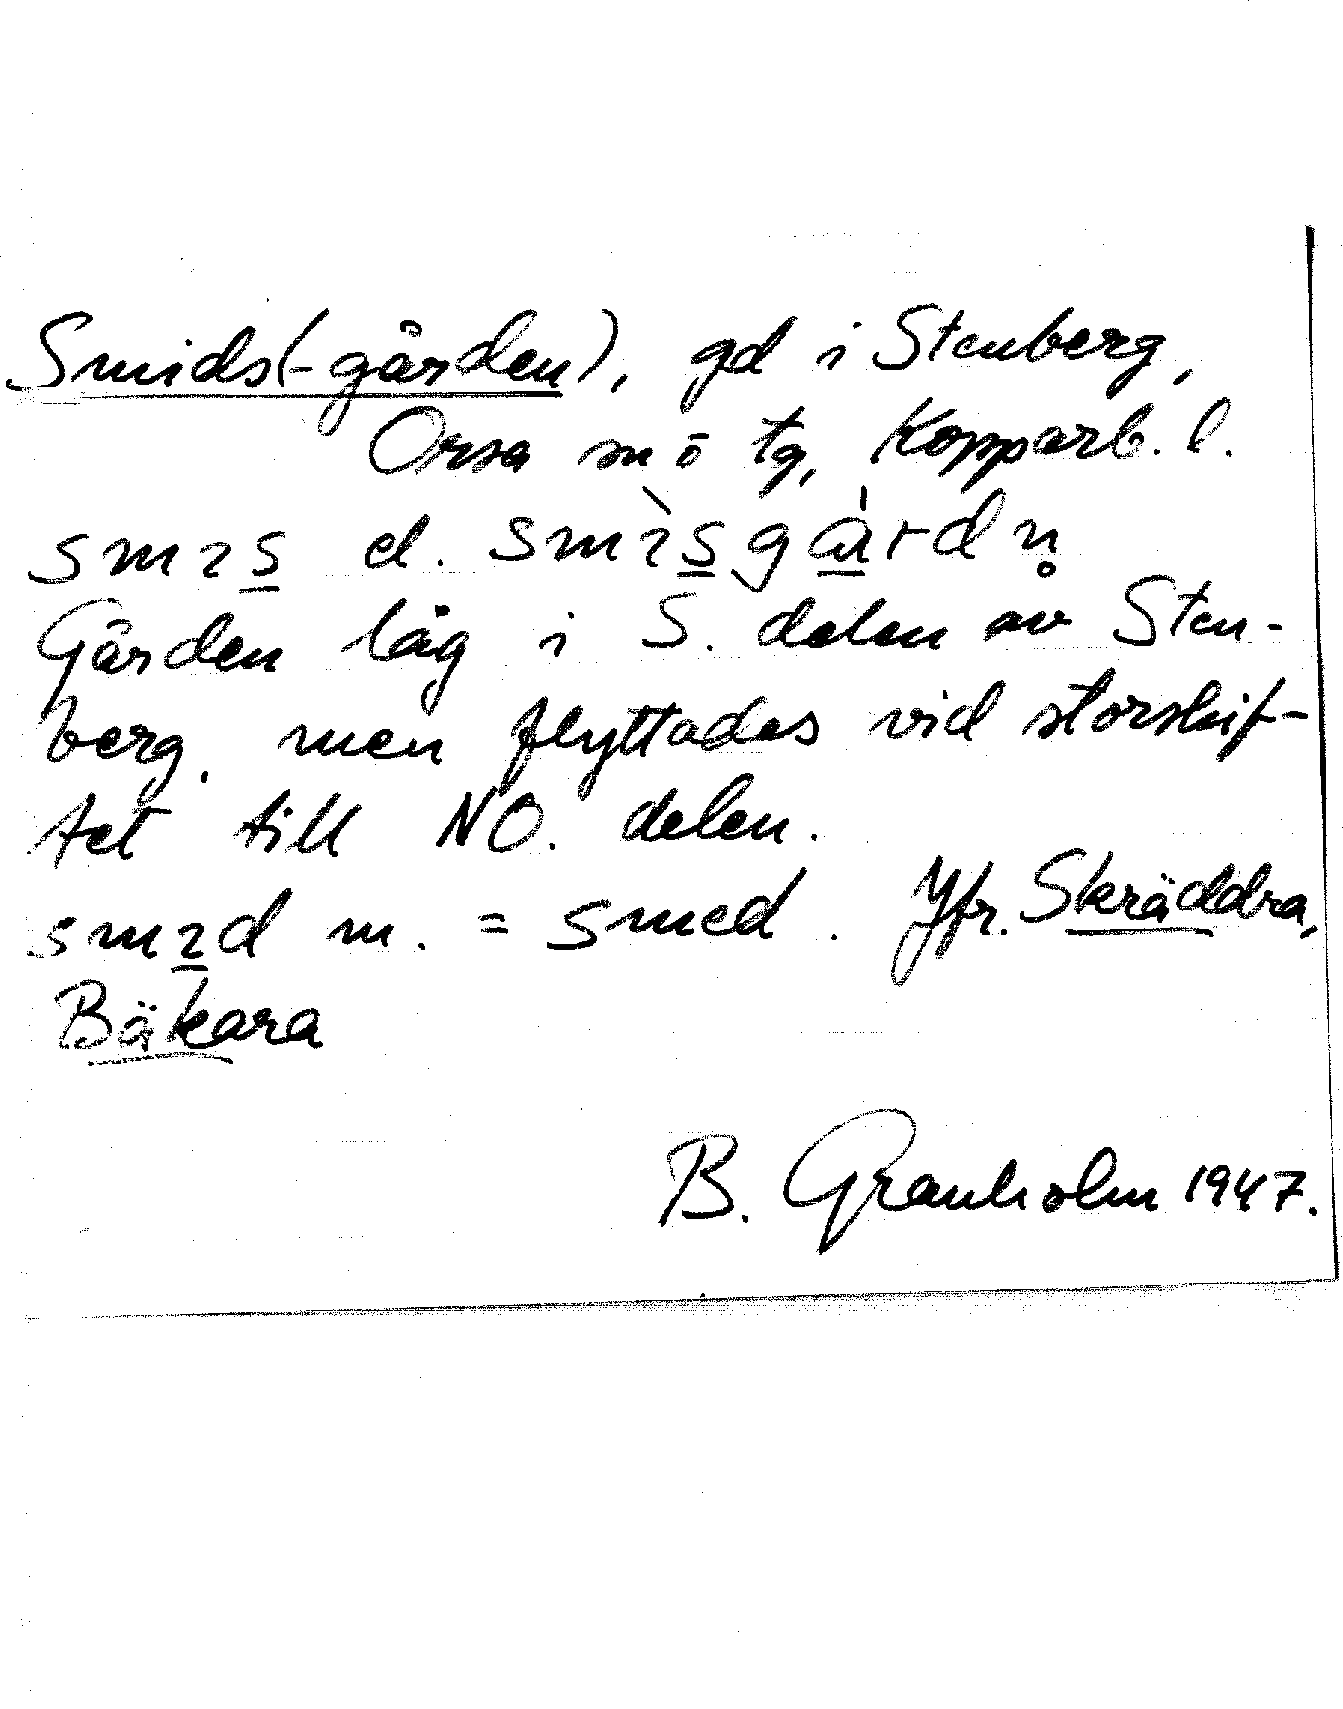 Smids(-gården), gd i Stenberg,
Orsa sn ō tg, Kopparb. l.
smɿs̲ el. smɿ̀s̲gà̲rdn̥
Gården låg i S. delen av Sten-
berg, men flyttades vid storskif-
tet till NO. delen.
smɿ̲d m. = smed. Jfr. Skräddra,
Bäkara
B. Granholm 1947.